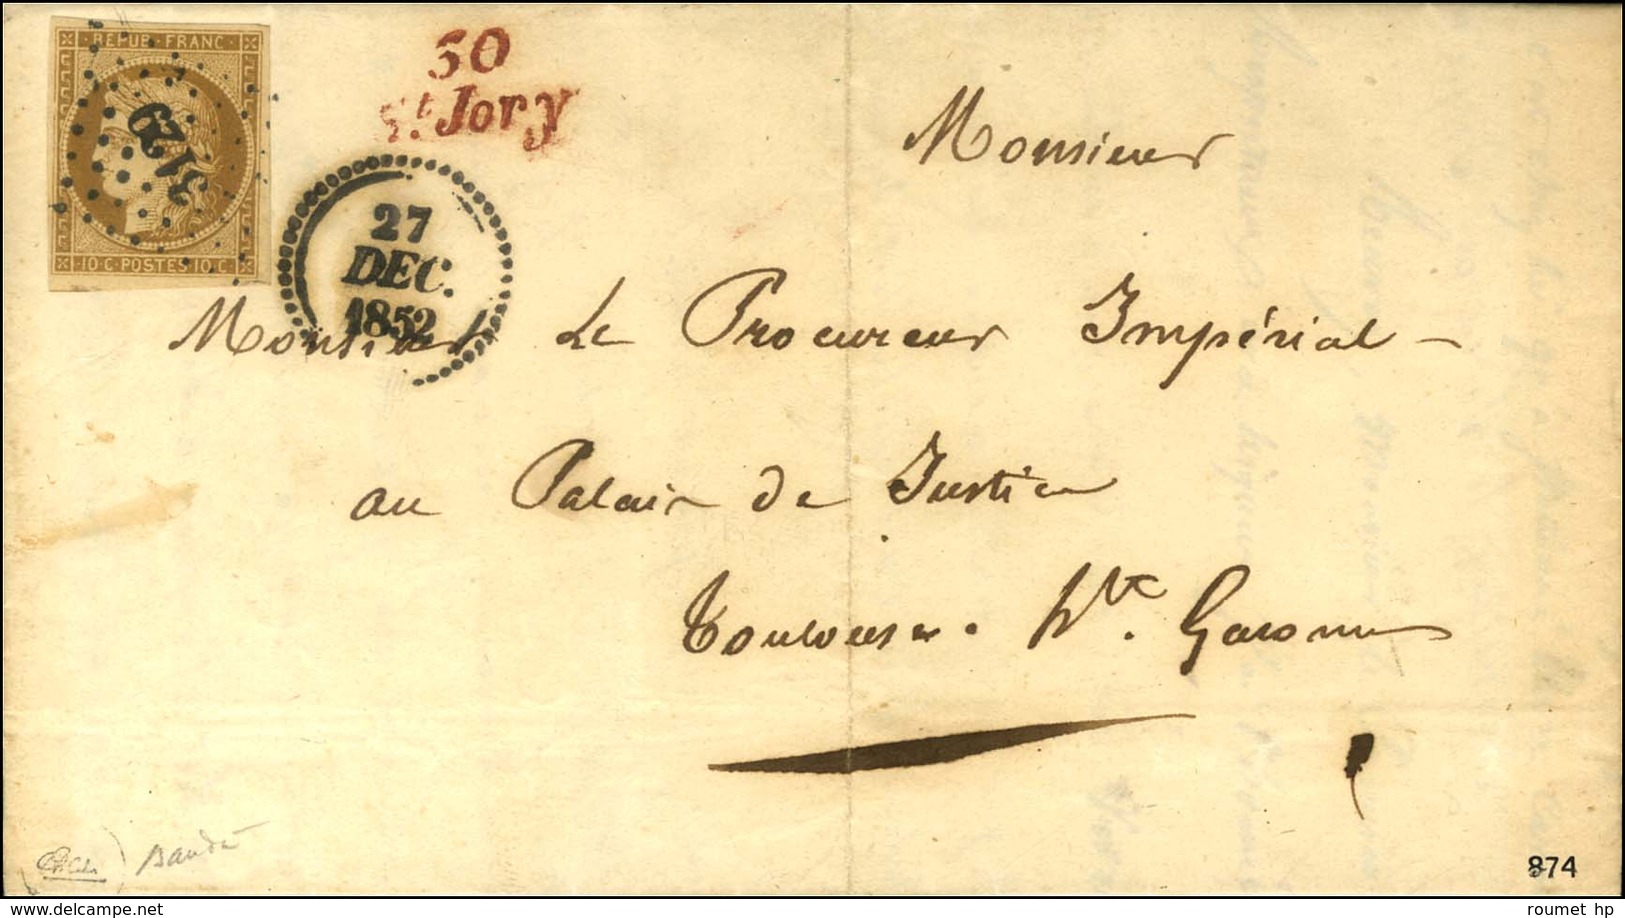 REPUB. FRANC
3129
10 C. POSTES 10 C.
30
St. Jory
27
DEC.
1852
Monsieur
Monsieur Le Procureur Impérial
au Palais de Justice
Toulouse. Hte. Garonne
874
roumet hp